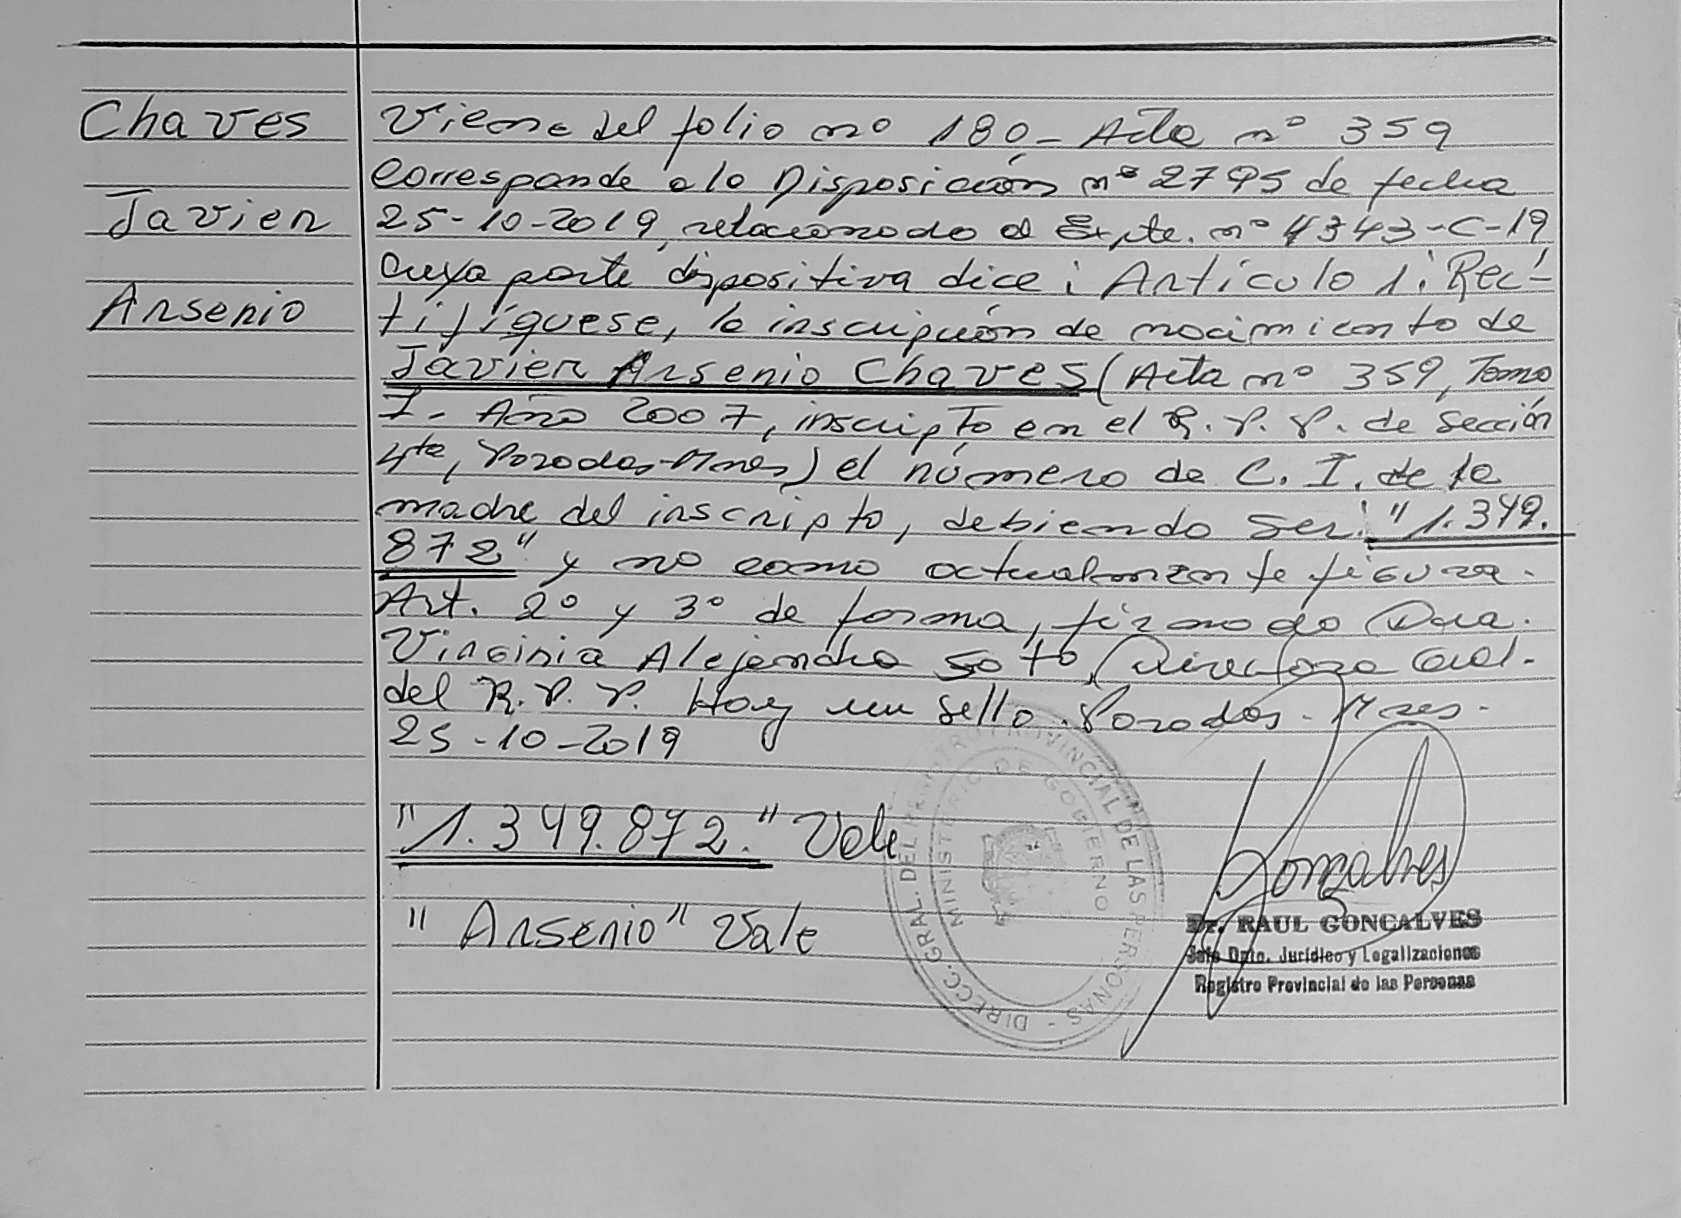 Chaves
Javier
Arsenio
Viene del folio nº 180 - Acta nº 359
corresponde a la Disposición nº 2795 de fecha
25-10-2019, relacionado al Expte. nº 4343-C-19,
cuya parte dispositiva dice: Artículo 1: Rec-
tifíquese, la inscripción de nacimiento de
Javier Arsenio Chaves (Acta nº 359, Tomo
I. Año 2007, inscripto en el R.P.P. de Sección
4ta, Posadas-Mnes) el número de C.I. de la
madre del inscripto, debiendo ser: "1.349.
872" y no como actualmente figura.
Art. 2º y 3º de forma, firmado Dra.
Virginia Alejandra Soto, Directora Gral.
del R.P.P. Hay un sello. Posadas. Mnes.
25-10-2019
"1.349.872." Vale
"Arsenio" Vale
DIRECC. GRAL. DEL REGISTRO PROVINCIAL DE LAS PERSONAS -
MINISTERIO DE GOBIERNO
Gonçalves
Dr. RAUL GONCALVES
Jefe Dpto. Jurídico y Legalizaciones
Registro Provincial de las Personas